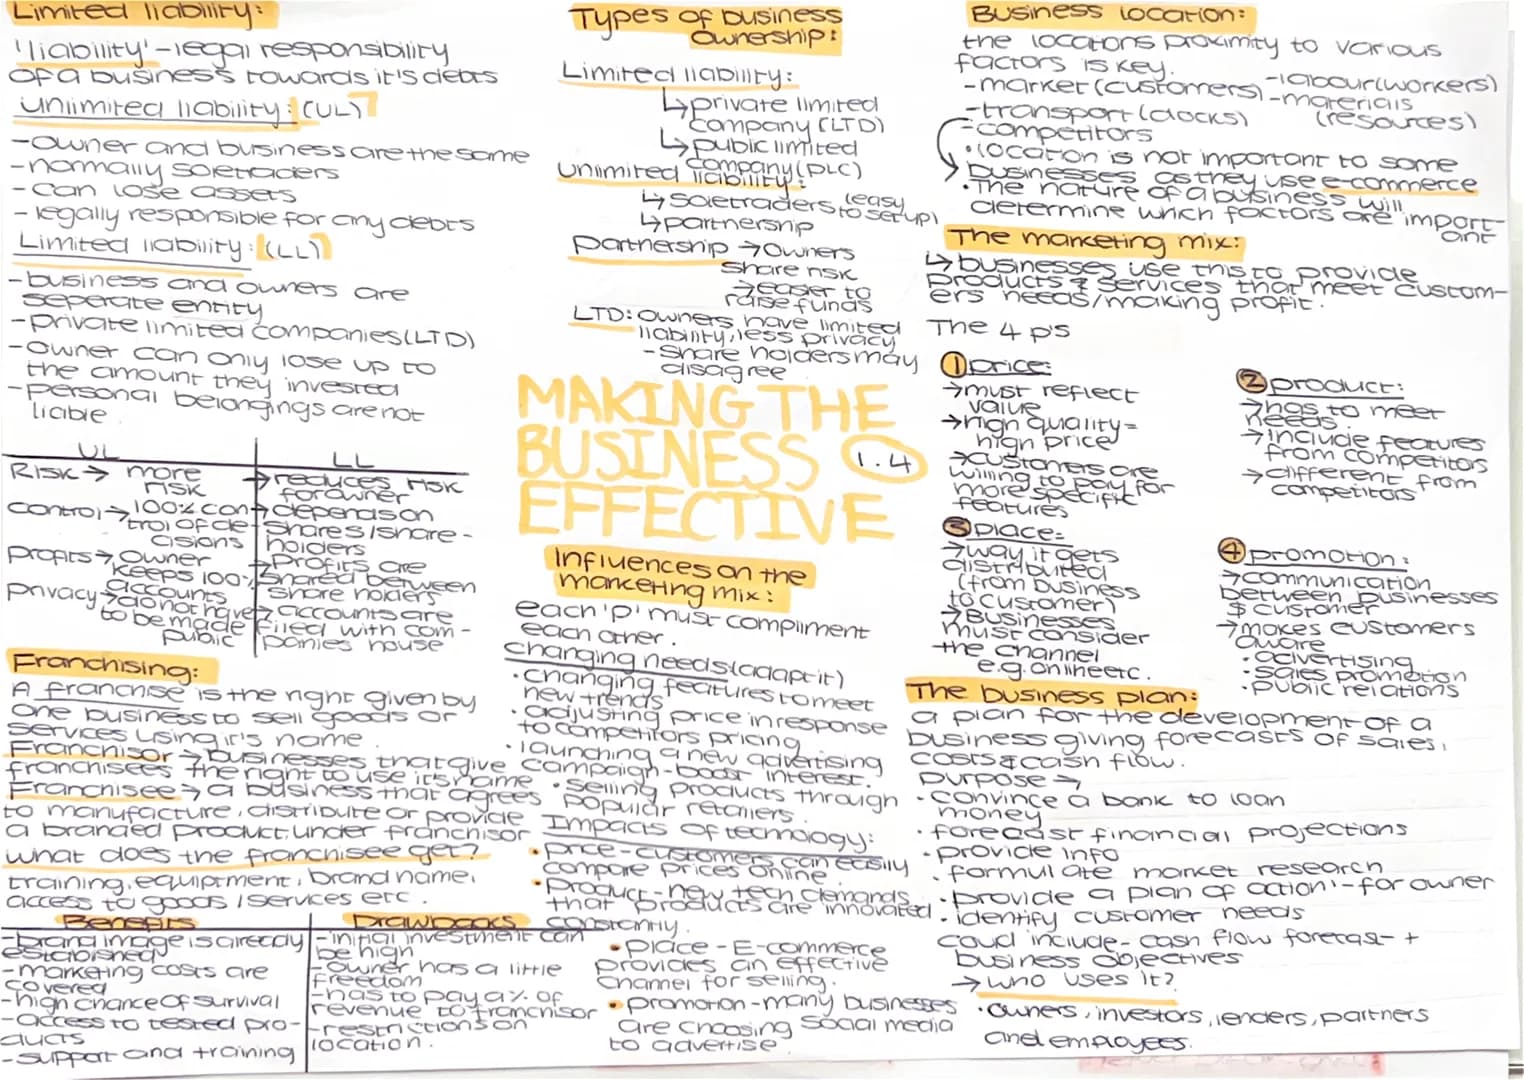 Limited liability:
'liability' - legal responsibility
of a business towards it's debts
unlimited liability: (UL)
- owner and business are the same
- normally soletraders
- can lose assets
- legally responsible for any debts
Limited liability: (LL)
- business and owners are
seperate entity
- private limited companies (LTD)
- owner can only lose up to
the amount they invested
- personal belongings are not
liable
UL
LL
Risk → more
risk
→ reduces risk
for owner
control → 100% con-
trol of de-
cisions
→ depends on
shares/share-
holders
profits → owner
keeps 100%
→ Profits are
shared between
share holders
privacy → accounts
do not have
to be made
public
→ accounts are
filed with com-
panies house
Franchising:
A franchise is the right given by
one business to sell goods or
services using it's name
Franchisor → businesses that give
franchisees the right to use it's name
Franchisee → a business that agrees
to manufacture, distribute or provide
a branded product, under franchisor
what does the franchisee get?
training, equiptment, brand name,
access to goods / services etc.
Benefits
- brand image is already
established
- marketing costs are
covered
- high chance of survival
- access to tested pro-
ducts
- support and training
Drawbacks
- initial investment can
be high
- owner has a little
freedom
- has to pay a % of
revenue to franchisor
- restrictions on
location.
Types of business
ownership:
Limited liability:
↳ private limited
company (LTD)
↳ public limited
company (PLC)
Unlimited liability:
↳ soletraders (easy
to set up)
↳ partnership
partnership → Owners
share risk
→ easer to
raise funds
LTD: owners have limited
liability, less privacy
- share holders may
disagree
MAKING THE
BUSINESS 1.4
EFFECTIVE
Influences on the
marketing mix:
each 'p' must compliment
each other.
changing needs (adapt it)
• changing features to meet
new trends
• adjusting price in response
to competitors pricing
• launching a new advertising
campaign - boost interest.
• selling products through
popular retailers.
Impacts of technology:
• price - customers can easily
compare prices online
• Product - new tech demands
that products are innovated
constantly.
• place - E-commerce
provides an effective
channel for selling.
• promotion - many businesses
are choosing social media
to advertise
Business location:
the locations proximity to various
factors is key.
- market (customers) - labour (workers)
- transport (docks) - materials
(resources)
- competitors
• location is not important to some
businesses as they use e-commerce
• The nature of a business will
determine which factors are import-
ant
The marketing mix:
↳ businesses use this to provide
products & services that meet custom-
ers needs/making profit.
The 4 p's
1 price:
→ must reflect
value
→ high quality =
high price
→ customers are
willing to pay for
more specific
features
2 product:
→ has to meet
needs.
→ include features
from competitors
→ different from
competitors
3 place:
→ way it gets
distributed
(from business
to customer)
→ Businesses
must consider
the channel
e.g. online etc.
4 promotion:
→ communication
between businesses
& customer
→ makes customers
aware
• advertising
• sales promotion
• public relations
The business plan:
a plan for the development of a
business giving forecasts of sales,
costs & cash flow.
purpose →
• convince a bank to loan
money
• forecast financial projections
• provide info
• formulate market research
• provide a plan of action - for owner
• identify customer needs
coud include - cash flow forecast +
business objectives
→ who uses it?
• owners, investors, lenders, partners
and employees.